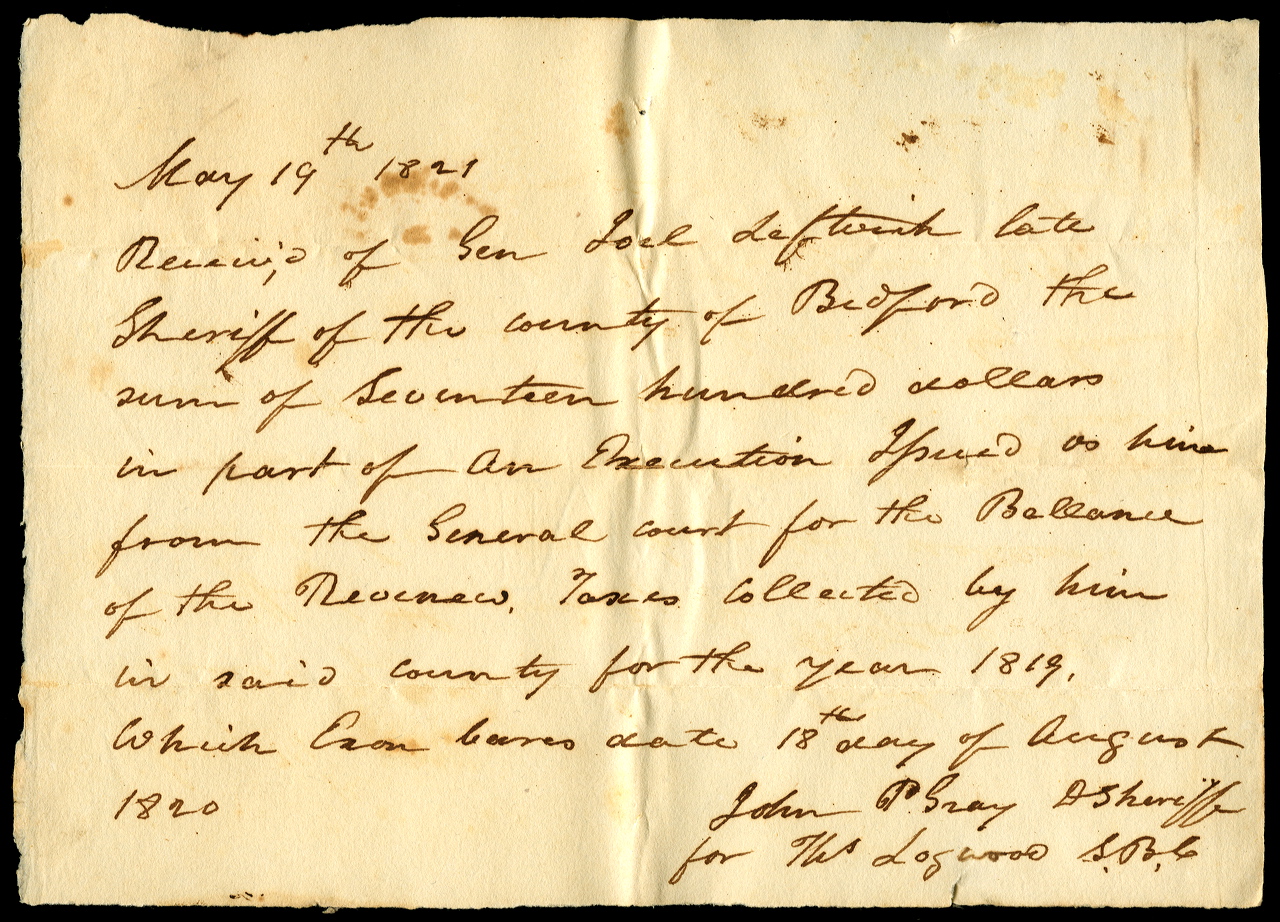 May 19th 1821
Receiv,d of Gen Joel Leftwich late
Sheriff of the county of Bedford the
sum of Seventeen hundred dollars
in part of An Execution Issued vs him
from the General court for the Ballance
of the Revenew, Taxes Collected by him
in said county for the year 1819,
Which Exon bares date 18th day of August
1820
John P. Gray DSheriff
for Ths Logwood S.B.C